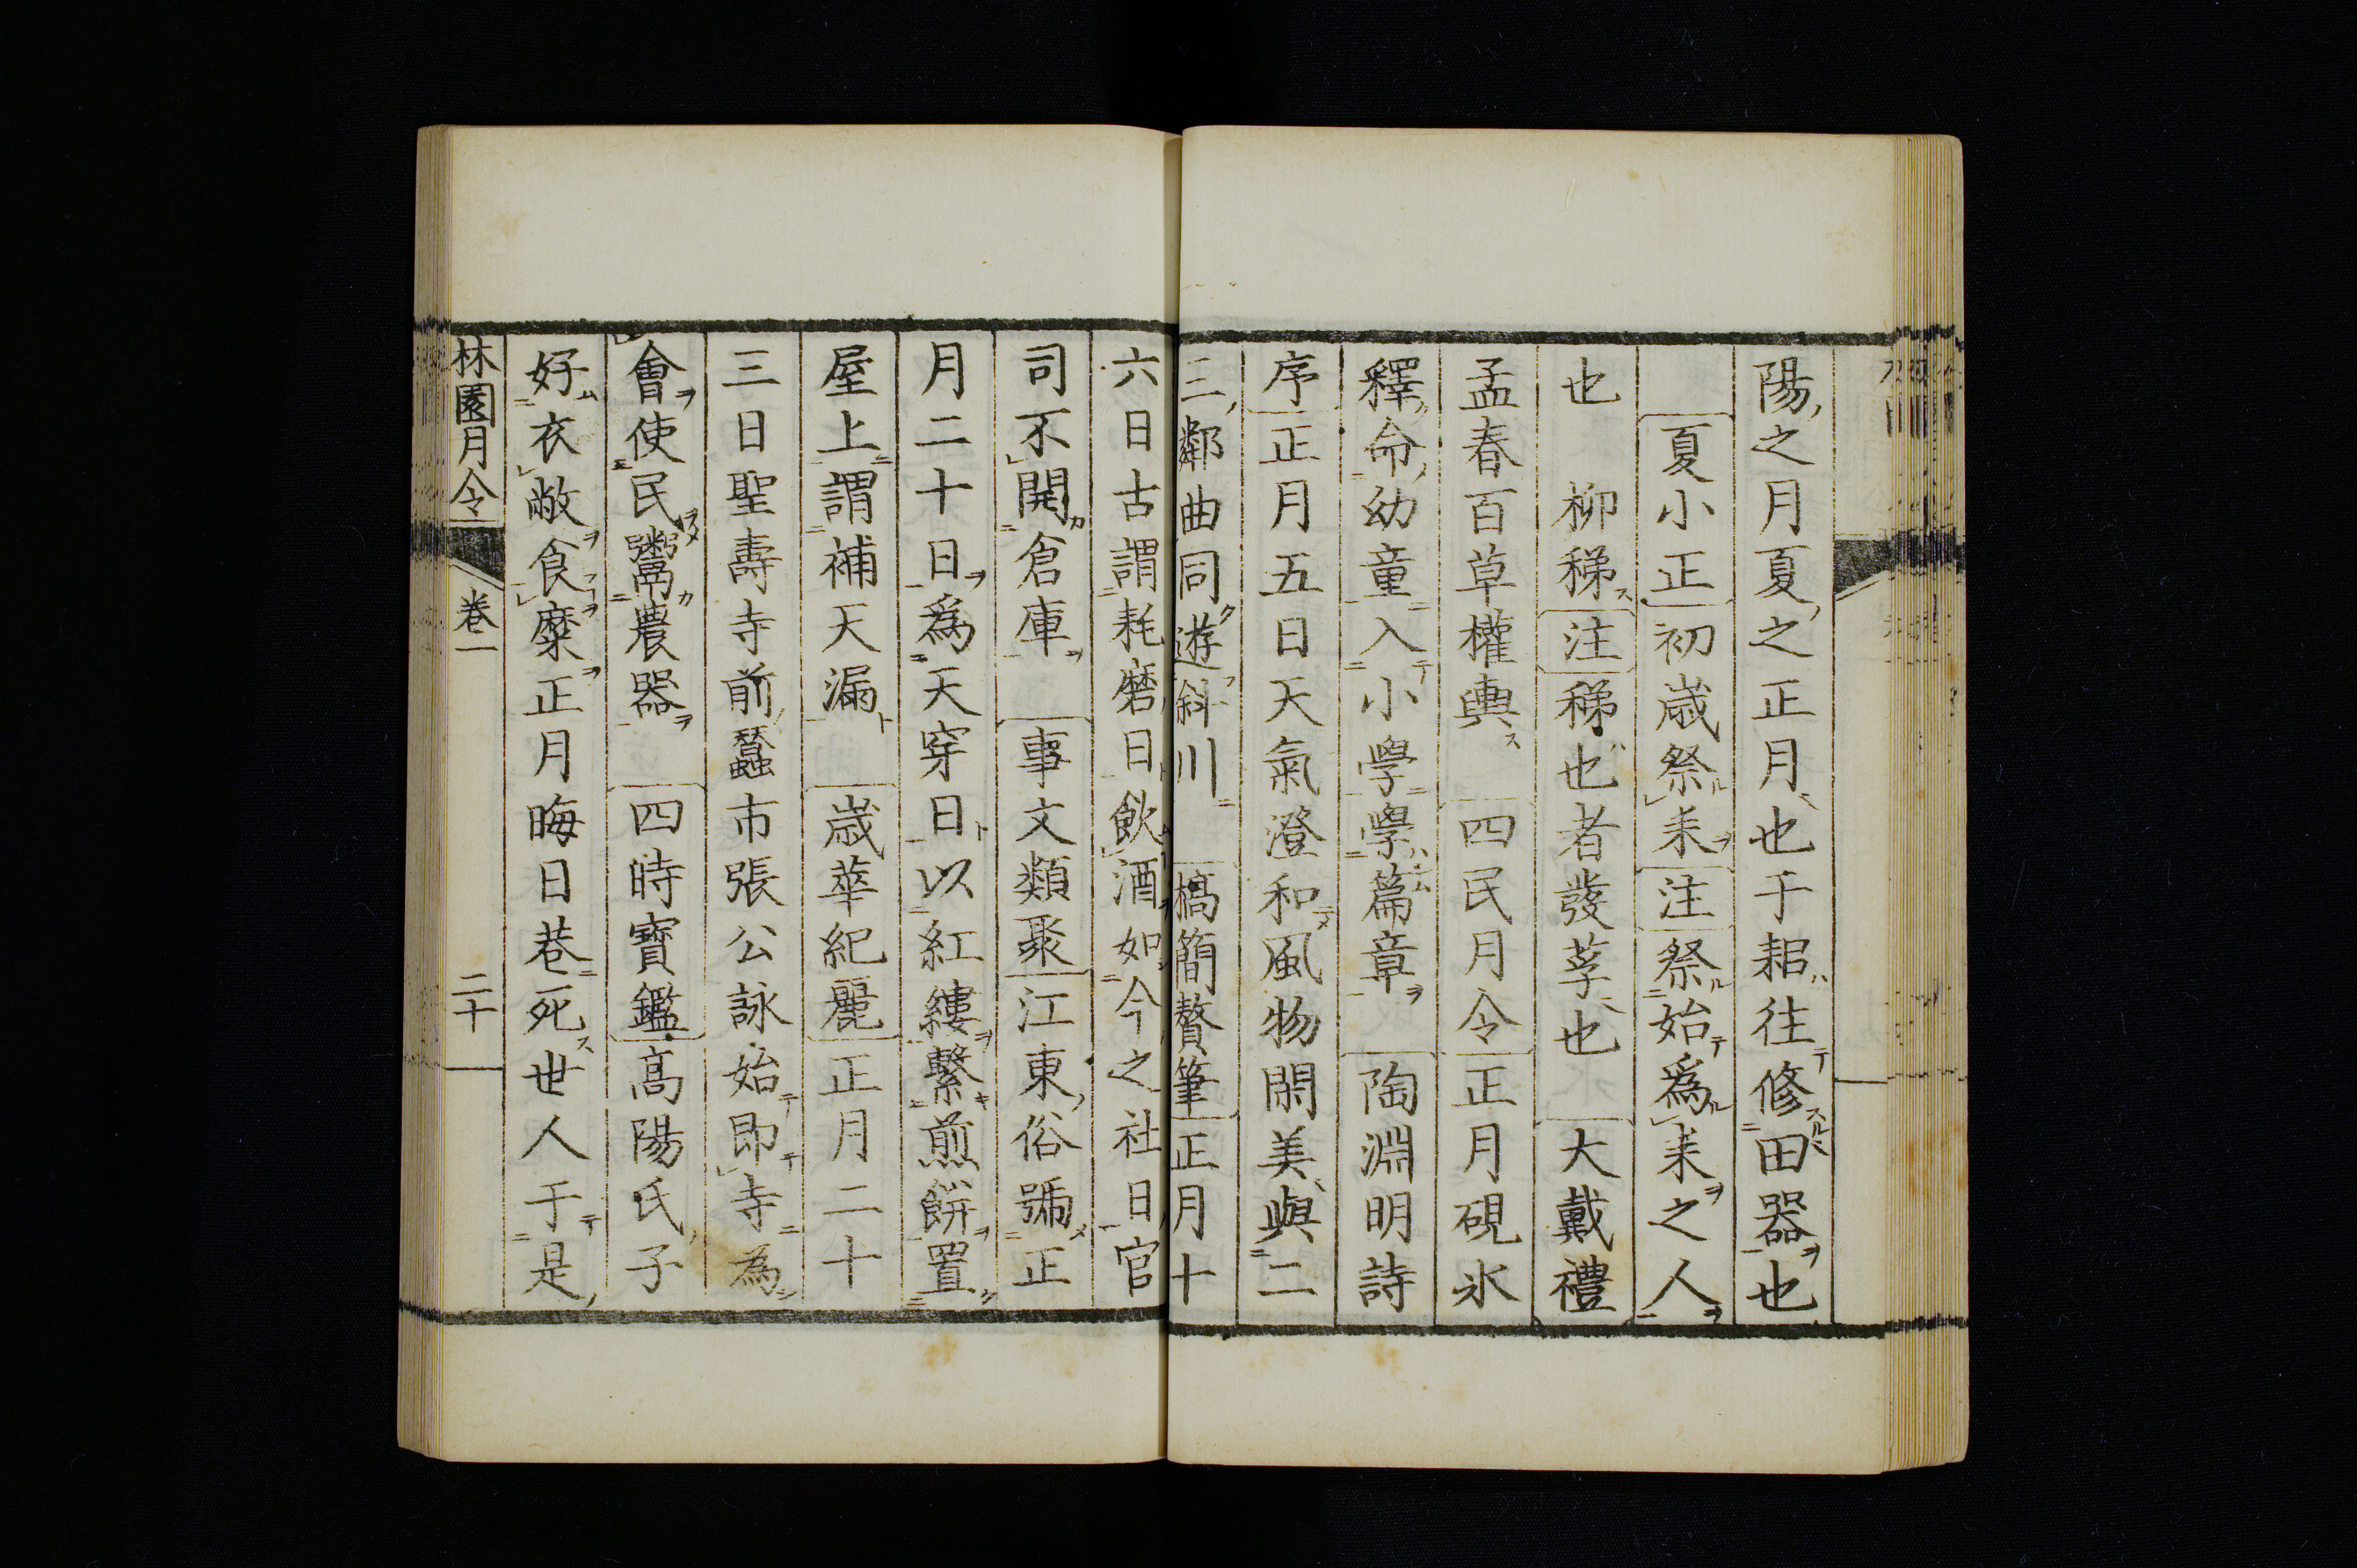 陽之月夏之正月也于耜往修田器也
夏小正初歲祭耒注祭始爲耒之人
也　柳稊注稊也者發芛也　大戴禮
孟春百草權輿　四民月令正月硯氷
釋命幼童入小學學篇章　陶淵明詩
序正月五日天氣澄和風物閑美與二
三鄰曲同遊斜川　槁簡贅筆正月十
六日古謂耗磨日飲酒如今之社日官
司不開倉庫　事文類聚江東俗號正
月二十日爲天穿日以紅縷繫煎餅置
屋上謂補天漏　歲華紀麗正月二十
三日聖壽寺前蠶市張公詠始即寺為
會使民鬻農器　四時寶鑑高陽氏子
好衣敝食糜正月晦日巷死世人于是
林園月令　卷一　二十